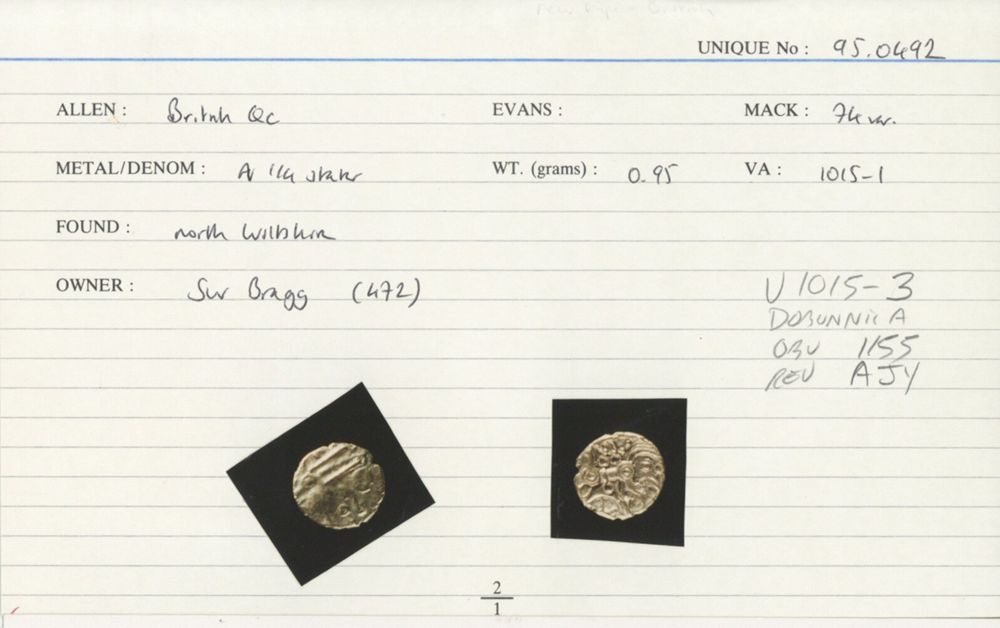 UNIQUE No : 95.0492
ALLEN : British Qc EVANS : MACK : 74 var.
METAL/DENOM : AV 1/4 stater WT. (grams) : 0.95 VA : 1015-1
FOUND : north Wiltshire
OWNER : Sur Bragg (472)
V 1015-3
DOBUNNIC A
OBV 1155
REV AJY
2
1